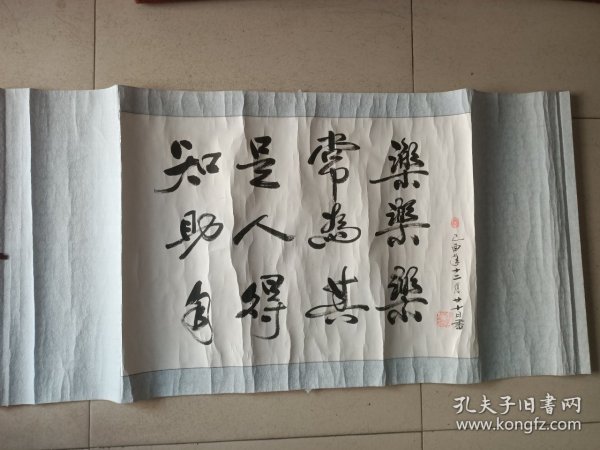 知足常樂
助人為樂
自得其樂
己酉十二月廿十日書
孔夫子旧書网
www.kongfz.com